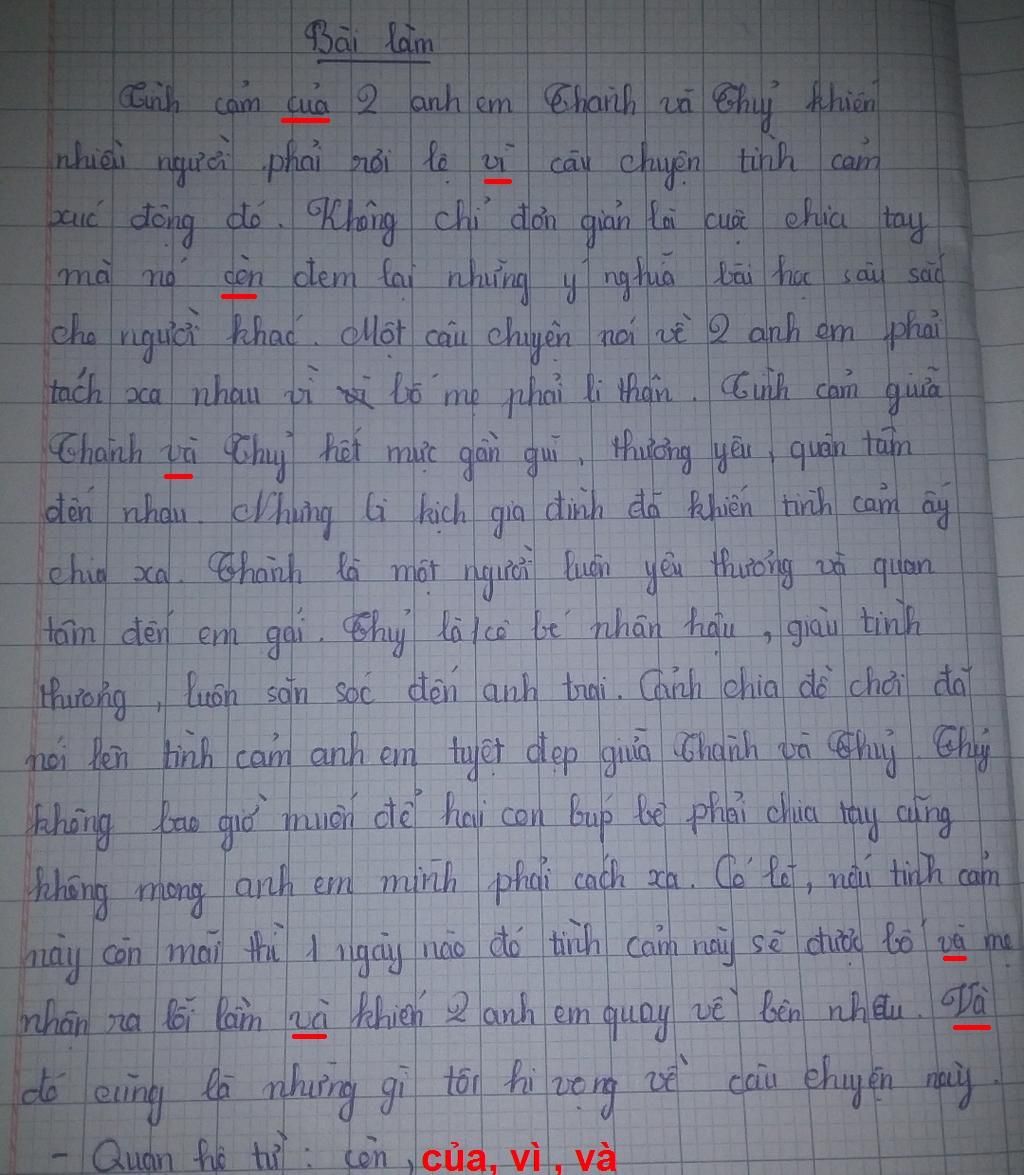 Bài làm
Tình cảm của 2 anh em Thành và Thuỷ khiến
nhiều người phải rơi lệ vì câu chuyện tình cảm
xúc động đó. Không chỉ đơn giản là cuộc chia tay
mà nó còn đem lại những ý nghĩa bài học sâu sắc
cho người khác. Một câu chuyện nói về 2 anh em phải
tách xa nhau vì bố mẹ phải li thân. Tình cảm giữa
Thành và Thuỷ hết mực gần gũi, thương yêu, quan tâm
đến nhau. Nhưng bi kịch gia đình đã khiến tình cảm ấy
chia xa. Thành là một người luôn yêu thương và quan
tâm đến em gái. Thuỷ là cô bé nhân hậu, giàu tình
thương, luôn săn sóc đến anh trai. Cảnh chia đồ chơi đã
nói lên tình cảm anh em tuyệt đẹp giữa Thành và Thuỷ. Thuỷ
không bao giờ muốn để hai con búp bê phải chia tay cũng
không mong anh em mình phải cách xa. Có lẽ, nếu tình cảm
này còn mãi thì 1 ngày nào đó tình cảm này sẽ được bố và mẹ
nhận ra lỗi lầm và khiến 2 anh em quay về bên nhau. Và
đó cũng là những gì tôi hi vọng về câu chuyện này.
- Quan hệ từ : còn, của, vì , và